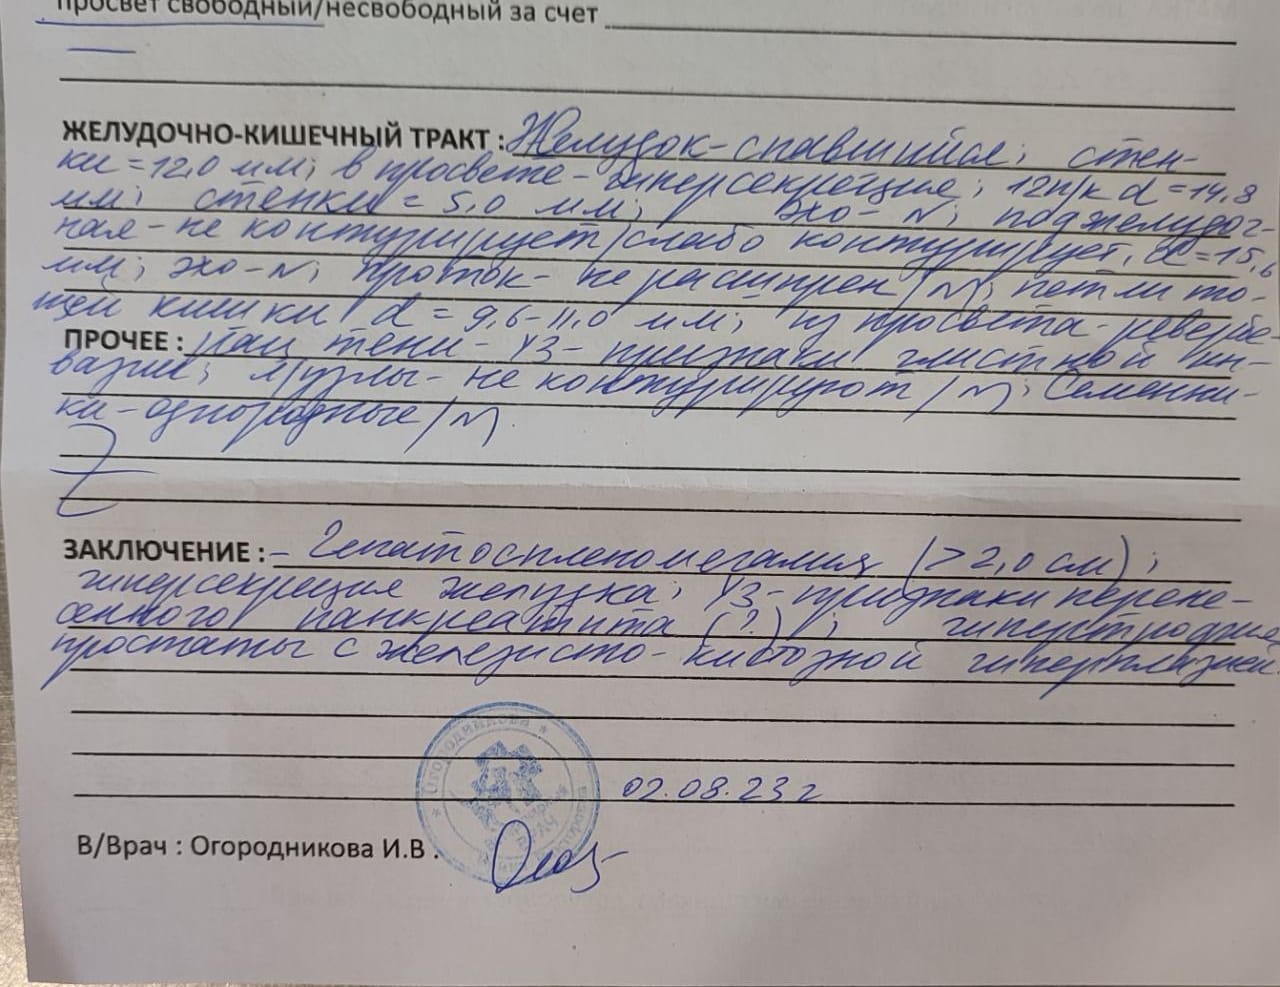 просвет свободный/несвободный за счет
ЖЕЛУДОЧНО-КИШЕЧНЫЙ ТРАКТ : Желудок-спавшийся; стен-
ки = 12,0 мм; в просвете-гиперсекреция; 12п/к d = 14,8
мм; стенки = 5,0 мм; эхо-N; поджелудоч-
ная-не контурирует/слабо контурирует, d = 15,6
мм; эхо-N; проток-не расширен/N; петли то-
щей кишки d = 9,6-11,0 мм; из просвета-ревербе-
ПРОЧЕЕ : тени-УЗ-признаки глистной ин-
вазии; л/узлы-не контурируют/N; Семенни-
ки-однородные/N
ЗАКЛЮЧЕНИЕ : - Гепатоспленомегалия (>2,0 см);
гиперсекреция желудка; УЗ-признаки перене-
сенного панкреатита (?); гипертрофия
простаты с железисто-кистозной гиперплазией.
Огородникова
02.08.23 г
В/Врач : Огородникова И.В .